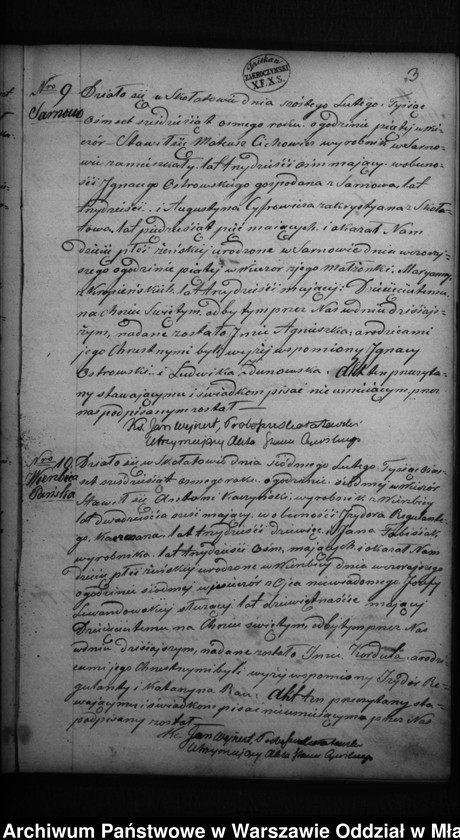 3
Dziekan
ZAKROCZYMSKI
X.F.X.S.
Nro 9
Samowo
Działo się w Skołatowie dnia szóstego Lutego. Tysiąc
ośmset sześdziesiąt ósmego roku. o godzinie piątej w wie-
czór. Stawił się Mateusz wyrobnik w Samo-
wie zamieszkały, lat trzydzieści ośm mający w obecno-
ści Ignacego Ostrowskiego gospodarza z Samowa, lat
trzydzieści i Augustyna zakrystyana z Skoła-
towa, lat pięćdziesiąt pięć mających, i okazał Nam
dziecię płci żeńskiej urodzone w Samowie dnia wczoraj-
szego o godzinie piątej w wieczór z jego Małżonki Maryanny
z lat trzydzieści mającej. Dziecięciu temu
na Chrzcie Świętym, odbytym przez Nas w dniu dzisiej-
szym, nadane zostało Imie Agnieszka, a rodzicami
jego Chrzestnymi byli wyżej wspomniony Ignacy
Ostrowski i Ludwika Akt ten przeczyta-
ny stawającemu i świadkom pisać nieumiejącym, przez
nas podpisanym został
Ks. Jan Wejnert, Proboszcz
Utrzymujący Akta Stanu Cywilnego
Nro 10
Wierzbica
Pańska
Działo się w Skołatowie dnia siódmego Lutego Tysiąc ośm-
set sześdziesiąt ósmego roku. o godzinie siódmej w wieczór
Stawił się wyrobnik z Wierzbicy
lat dwadzieścia sześć mający, w obecności Izydora Regulantie-
go, lat trzydzieści dziewięć, i Jana
wyrobnika, lat trzydzieści ośm, mających i okazał Nam
dziecię płci żeńskiej urodzone w Wierzbicy dnia wczorajszego
o godzinie siódmej w wieczór z Ojca niewiadomego, Józefy
Lewandowskiej służącej, lat dziewiętnaście mającej
Dziecięciu temu na Chrzcie świętym, odbytym przez Nas
w dniu dzisiejszym, nadane zostało Imie Kordula. a rodzi-
cami jego Chrzestnymi byli wyżej wspomniony Izydor Re-
gulanty i Katarzyna Rau. Akt ten przeczytany sta-
wającemu i świadkom pisać nieumiejącym przez Nas
podpisany został
Ks. Jan Wejnert Proboszcz
Utrzymujący Akta Stanu Cywilnego
Archiwum Państwowe w Warszawie Oddział w Mła